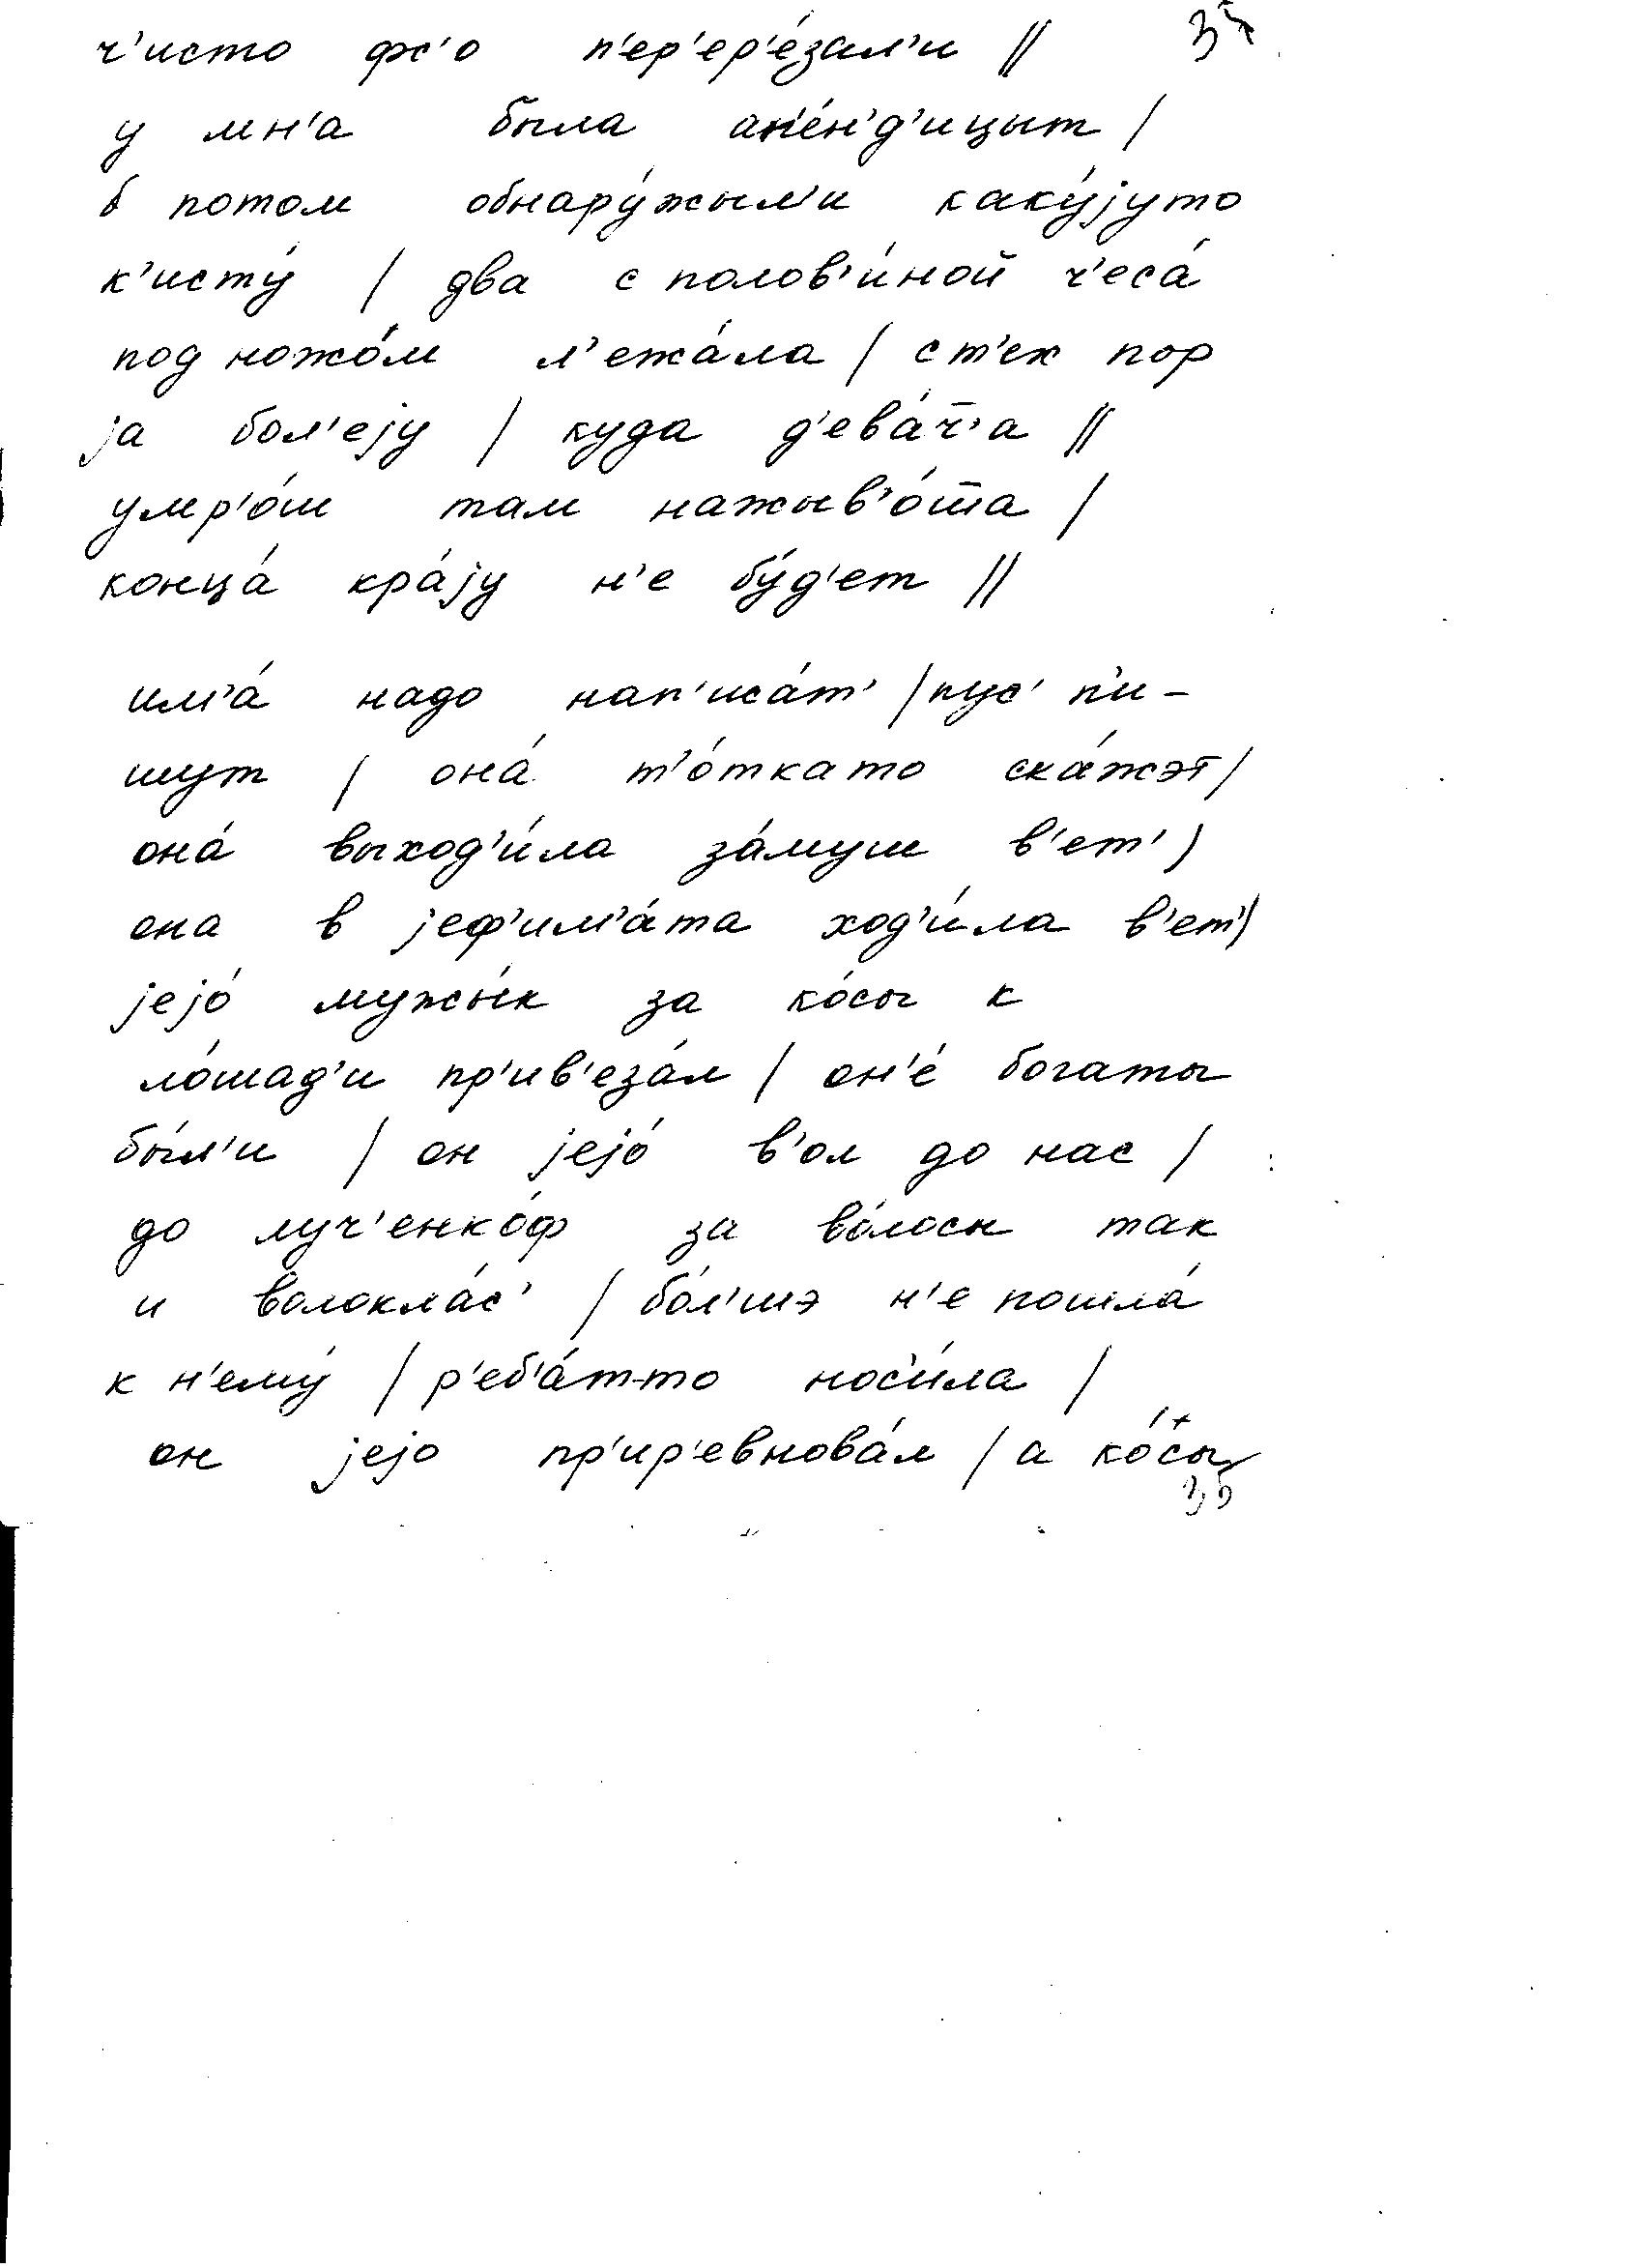 ч'исто фс'о п'ер'ер'е́зал'и ||
у мн'а была ап'е́н'д'ицыт |
б потом обнару́жыл'и каку́јуто
к'исту́ | два с полов'и́ной ч'еса́
под ножо́м л'ежа́ла | ст'ех пор
ја бол'еју | куда д'ева́т̅'а ||
умр'о́ш там нажыв'о́т̅а |
конца́ кра́ју н'е бу́д'ет ||
им'а́ надо нап'иса́т' | пус' п'и-
шут | она́ т'о́ткато ска́жэт |
она́ выход'и́ла за́муш в'ет' |
она в јеф'им'а́та ход'и́ла в'ет' |
јејо́ мужы́к за ко́сы к
ло́шад'и пр'ив'еза́л | он'е́ богаты
бы́л'и | он јејо́ в'ол до нас |
до луч'енко́ф за во́лосы так
и волокла́с' | бо́л'шэ н'е пошла́
к н'ему́ | р'еб'а́т-то нос'и́ла |
он јејо пр'ир'евнова́л | а ко́сы